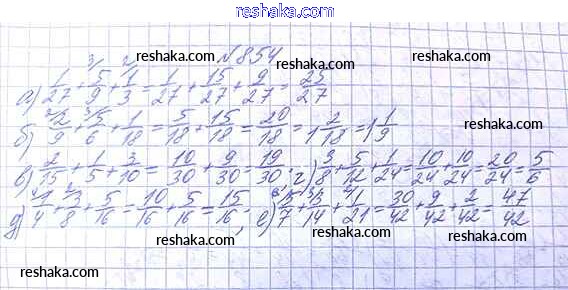 reshaka.com
№854
а) 1/27 + 5/9 + 1/3 = 1/27 + 15/27 + 9/27 = 25/27
б) 2/9 + 5/6 + 1/18 = 5/18 + 15/18 = 20/18 = 1 2/18 = 1 1/9
в) 2/15 + 1/5 + 3/10 = 10/30 + 9/30 = 19/30; г) 3/8 + 5/12 + 1/24 = 10/24 + 10/24 = 20/24 = 5/6
д) 1/4 + 3/8 + 5/16 = 10/16 + 5/16 = 15/16; е) 5/7 + 3/14 + 1/21 = 30/42 + 9/42 + 2/42 = 47/42
reshaka.com
reshaka.com
reshaka.com
reshaka.com
reshaka.com
reshaka.com
reshaka.com
reshaka.com
reshaka.com
reshaka.com